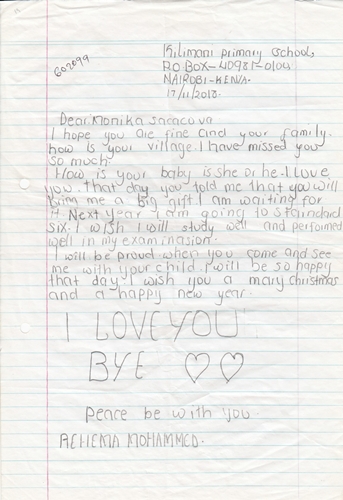 602099
Kilimani primary school,
P.O BOX-40981-0100
NAIROBI-KENYA.
17/11/2018.
Dear Monika
I hope you are fine and your family.
how is your village. I have missed you
so much.
How is your baby is she or he. I Love
you. that day you told me that you will
bring me a big gift I am waiting for
it. Next year I am going to Standard
six. I wish I will study well and performed
well in my examinasion.
I will be proud when you come and see
me with your child. I will be so happy
that day. I wish you a mary christmas
and a happy new year.
I LOVE YOU
BYE ♡♡
Peace be with you.
REHEMA MOHAMMED.